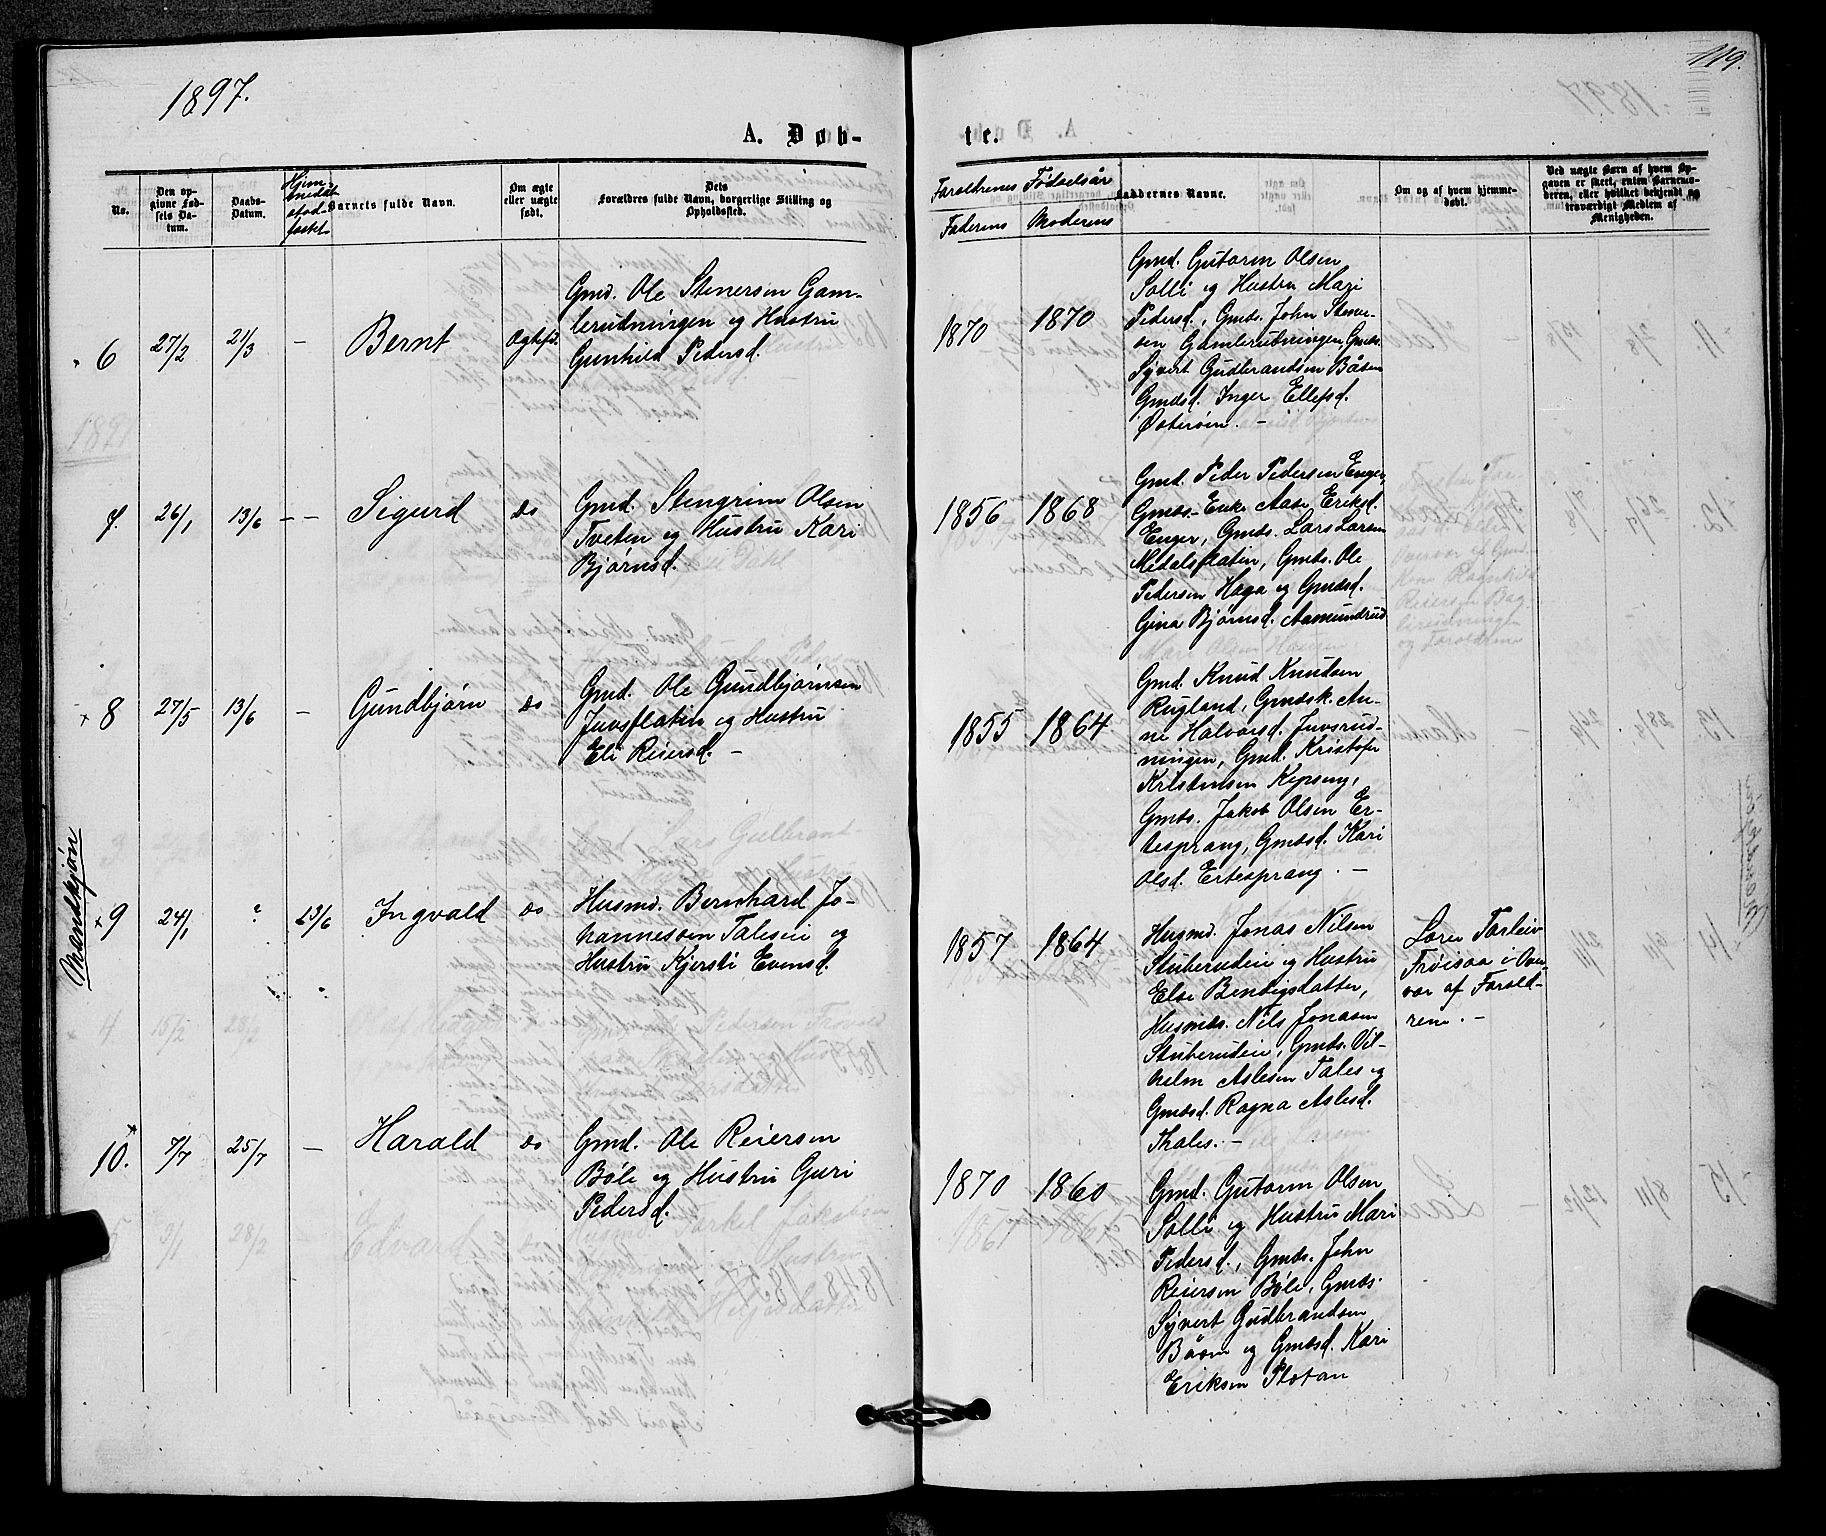 1897.
119.
A. Døb-
te.
No.
Den op-
givne Fød-
sels Da-
tum.
Daabs-
Datum.
Hjem-
medøbt
stad-
fæstet
Barnets fulde Navn.
Om ægte
eller uægte
født.
Dets
Forældres fulde Navn, borgerlige Stilling og
Opholdssted.
Forældrenes Fødselsår
Faderens
Moderens
Faddernes Navne.
Om og af hvem hjemme-
døbt.
Ved uægte Børn af hvem Op-
gaven er skeet, enten Barnemo-
deren, eller hvilket bekjendt og
troværdigt Medlem af
Menigheden.
Mandkjøn
6
27/2
21/3
—
Bernt
Ægtefd.
Gmd. Ole Stenersen Gam-
lerudningen og Hustru
Gunhild Pedersd.
1870
1870
Gmd. Gutorm Olsen
Solli og Hustru Mari
Pedersd., Gmds. John Stener-
sen Gamlerudningen, Gmds.
Syvert Gudbrandsen Båsen
Gmdsd. Inger Ellefsd.
Østerøen. —
7.
26/1
13/6
— —
Sigurd
do
Gmd. Stengrim Olsen
Tveten og Hustru Kari
Bjørnsd.
1856
1868
Gmd. Peder Pedersen Enger,
Gmds-Enke Aase Eriksd.
Enger, Gmds. Lars Larsen
Medalsflatin, Gmds. Ole
Pedersen Haga og Gmdsd.
Gina Bjørnsd. Aasmundrud
× 8
27/5
13/6
—
Gundbjørn
do
Gmd. Ole Gundbjørnsen
Juvsflatin og Hustru
Eli Reiersd. —
1855
1864
Gmd. Knud Knudsen
Rugland, Gmdsk. An-
ne Halvorsd. Juvsrud-
ningen, Gmd. Kristofer
Kristensen Kepseng,
Gmds. Jakob Olsen Er-
tesprang, Gmdsd. Kari
Olsd. Ertesprang. —
× 9
24/1
?
13/6
Ingvald
do
Husmd. Bernhard Jo-
hannessen Taleseie og
Hustru Kjersti Evensd.
1857
1864
Husmd. Jonas Nilsen
Stuberudeie og Hustru
Else Bendigsdatter,
Husmds. Nils Jonasen
Stuberudeie, Gmds. Vil-
helm Aslesen Tales og
Gmdsd. Ragna Aslesd.
Thales. —
Lærer Tarleiv
Trøisaa i Over-
vær af Foræld-
rene. —
10.
7/7
25/7
—
Harald
do
Gmd. Ole Reiersen
Böle og Hustru Guri
Pedersd.
1870
1860
Gmd. Gutorm Olsen
Solli og Hustru Mari
Pedersd., Gmds. John
Reiersen Böle, Gmds.
Syvert Gudbrandsen
Båsen og Gmdsd. Kari
Eriksen Plotan